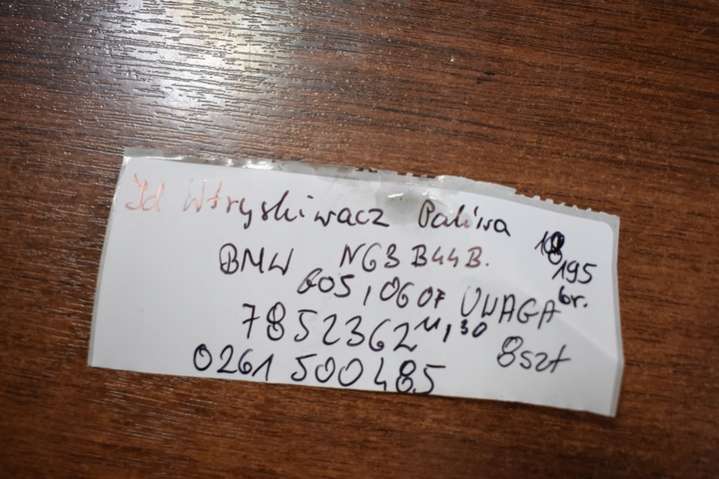 Id Wtryskiwacz Paliwa
BMW N63 B44B. 18
195
605,0607 UWAGA br.
7852362 11,30 8szt
0261 500485